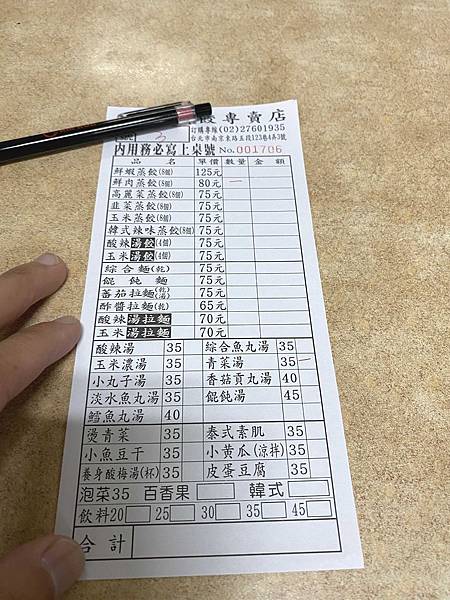 餃專賣店
訂購專線(02)27601935
台北市南京東路五段123巷4弄3號
內用務必寫上桌號 No.001706
品名 單價 數量 金額
鮮蝦蒸餃(8個) 125元
鮮肉蒸餃(8個) 80元 一
高麗菜蒸餃(8個) 75元
韭菜蒸餃(8個) 75元
玉米蒸餃(8個) 75元
韓式辣味蒸餃(8個) 75元
酸辣湯餃(4個) 75元
玉米湯餃(4個) 75元
綜合麵(乾) 75元
餛飩麵 75元
蕃茄拉麵(乾湯) 75元
酢醬拉麵(乾) 65元
酸辣湯拉麵 70元
玉米湯拉麵 70元
酸辣湯 35 綜合魚丸湯 35
玉米濃湯 35 青菜湯 35 一
小丸子湯 35 香菇貢丸湯 40
淡水魚丸湯 35 餛飩湯 45
鱈魚丸湯 40
燙青菜 35 泰式素肌 35
小魚豆干 35 小黃瓜(涼拌) 35
養身酸梅湯(杯) 35 皮蛋豆腐 35
泡菜35 百香果 韓式
飲料20 25 30 35 45
合計